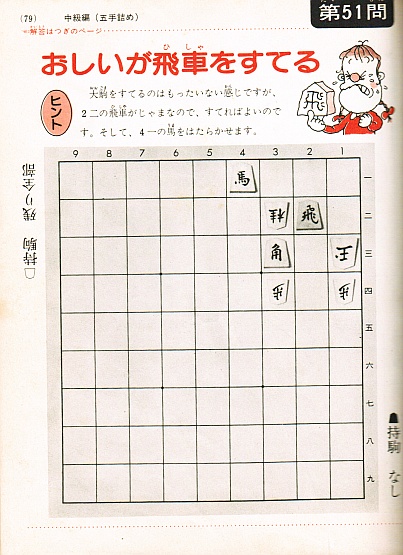 (79) 中級編(五手詰め)
第51問
解答はつぎのページ
おしいが飛車をすてる
ひしゃ
飛
ヒント
大駒をすてるのはもったいない感じですが、
2二の飛車がじゃまなので、すてればよいので
す。そして、4一の馬をはたらかせます。
9 8 7 6 5 4 3 2 1
馬 一
飛 二
角 王 三
歩 歩 四
五
六
七
八
九
持駒 残り全部
持駒 なし